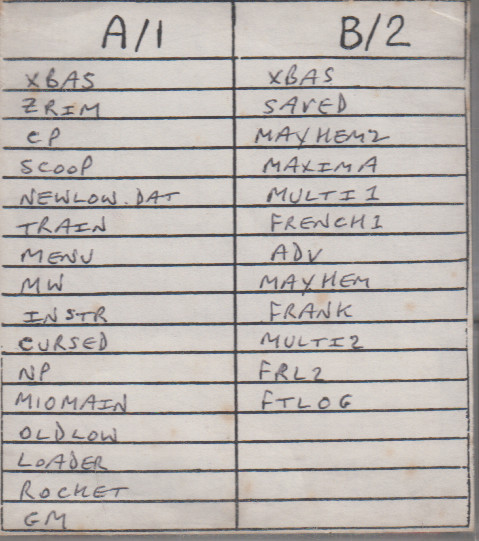 A/1
XBAS
ZRIM
CP
SCOOP
NEWLOW.DAT
TRAIN
MENU
MW
INSTR
CURSED
NP
MIOMAIN
OLDLOW
LOADER
ROCKET
GM
B/2
XBAS
SAVED
MAYHEM2
MAXIMA
MULTI1
FRENCH1
ADV
MAYHEM
FRANK
MULTI2
FRL2
FTLOG